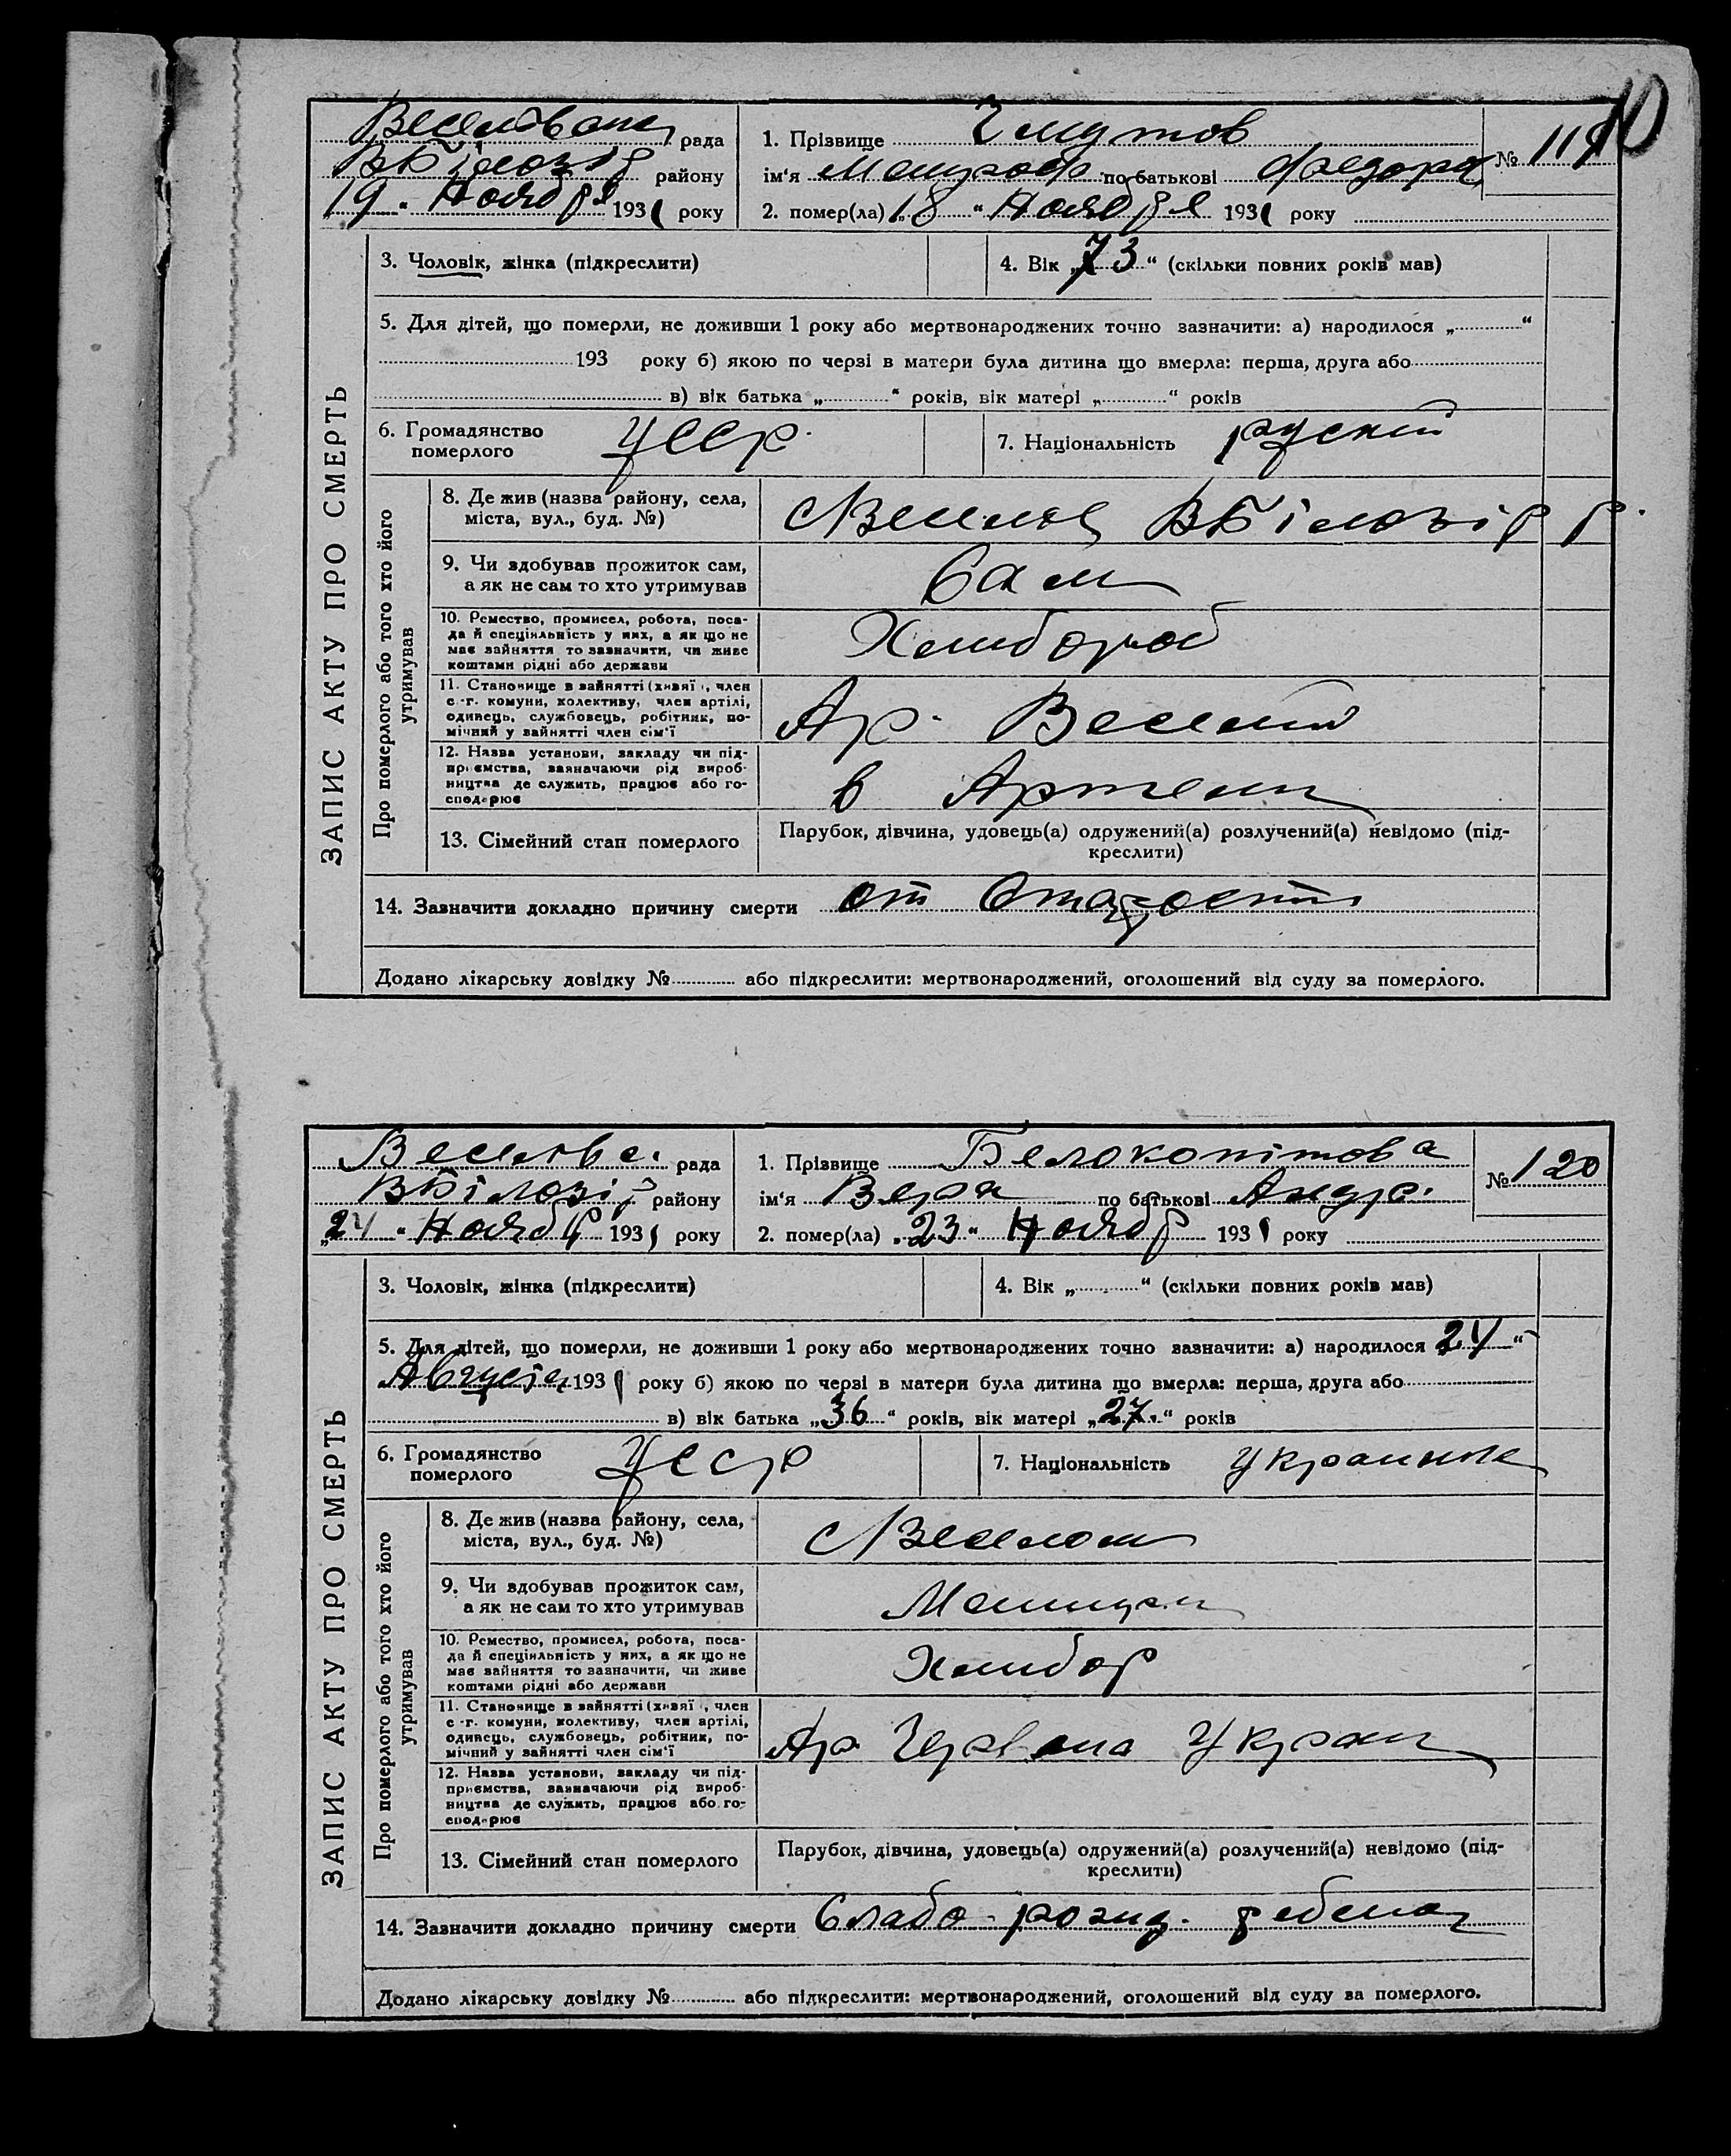 10
рада 1. Прізвище № 119
району ім'я по батькові Федора
19 " Ноября 1931 року 2. помер(ла) „18 " Ноября 1931 року
ЗАПИС АКТУ ПРО СМЕРТЬ
3. Чоловік, жінка (підкреслити) 4. Вік „73" (скільки повних років мав)
5. Для дітей, що померли, не доживши 1 року або мертвонароджених точно зазначити: а) народилося „ "
193 року б) якою по черзі в матери була дитина що вмерла: перша, друга або
в) вік батька „ " років, вік матері „ " років
6. Громадянство померлого УССР 7. Національність руский
Про померлого або того хто його утримував
8. Де жив (назва району, села,
міста, вул., буд. №)
9. Чи здобував прожиток сам,
а як не сам то хто утримував Сам
10. Ремество, промисел, робота, поса-
да й специіяльність у них, а як що не
має зайняття то зазначити, чи живе
коштами рідні або держави Хлибороб
11. Становище в зайнятті (хазяї), член
с.-г. комуни, колективу, член артілі,
одинець, службовець, робітник, по-
мічний у зайнятті член сім'ї Ар.
12. Назва установи, закладу чи під-
приємства, зазначаючи рід вироб-
ництва де служить, працює або го-
сподарює в Артели
13. Сімейний стан померлого Парубок, дівчина, удовець(а) одружений(а) розлучений(а) невідомо (під-
креслити)
14. Зазначити докладно причину смерти от Старости
Додано лікарську довідку № або підкреслити: мертвонароджений, оголошений від суду за померлого.
рада 1. Прізвище Белокопітова № 120
ВБілозір району ім'я Вера по батькові Андр.
„24 " Ноябр 1931 року 2. помер(ла) „23 " Ноябр 1931 року
ЗАПИС АКТУ ПРО СМЕРТЬ
3. Чоловік, жінка (підкреслити) 4. Вік „ " (скільки повних років мав)
5. Для дітей, що померли, не доживши 1 року або мертвонароджених точно зазначити: а) народилося 24 "
Августа 1931 року б) якою по черзі в матери була дитина що вмерла: перша, друга або
в) вік батька „36 " років, вік матері „27." років
6. Громадянство померлого УССР 7. Національність
Про померлого або того хто його утримував
8. Де жив (назва району, села,
міста, вул., буд. №)
9. Чи здобував прожиток сам,
а як не сам то хто утримував
10. Ремество, промисел, робота, поса-
да й специіяльність у них, а як що не
має зайняття то зазначити, чи живе
коштами рідні або держави Хлибор
11. Становище в зайнятті (хазяї), член
с.-г. комуни, колективу, член артілі,
одинець, службовець, робітник, по-
мічний у зайнятті член сім'ї Ар Червона Украи
12. Назва установи, закладу чи під-
приємства, зазначаючи рід вироб-
ництва де служить, працює або го-
сподарює
13. Сімейний стан померлого Парубок, дівчина, удовець(а) одружений(а) розлучений(а) невідомо (під-
креслити)
14. Зазначити докладно причину смерти Слабо
Додано лікарську довідку № або підкреслити: мертвонароджений, оголошений від суду за померлого.